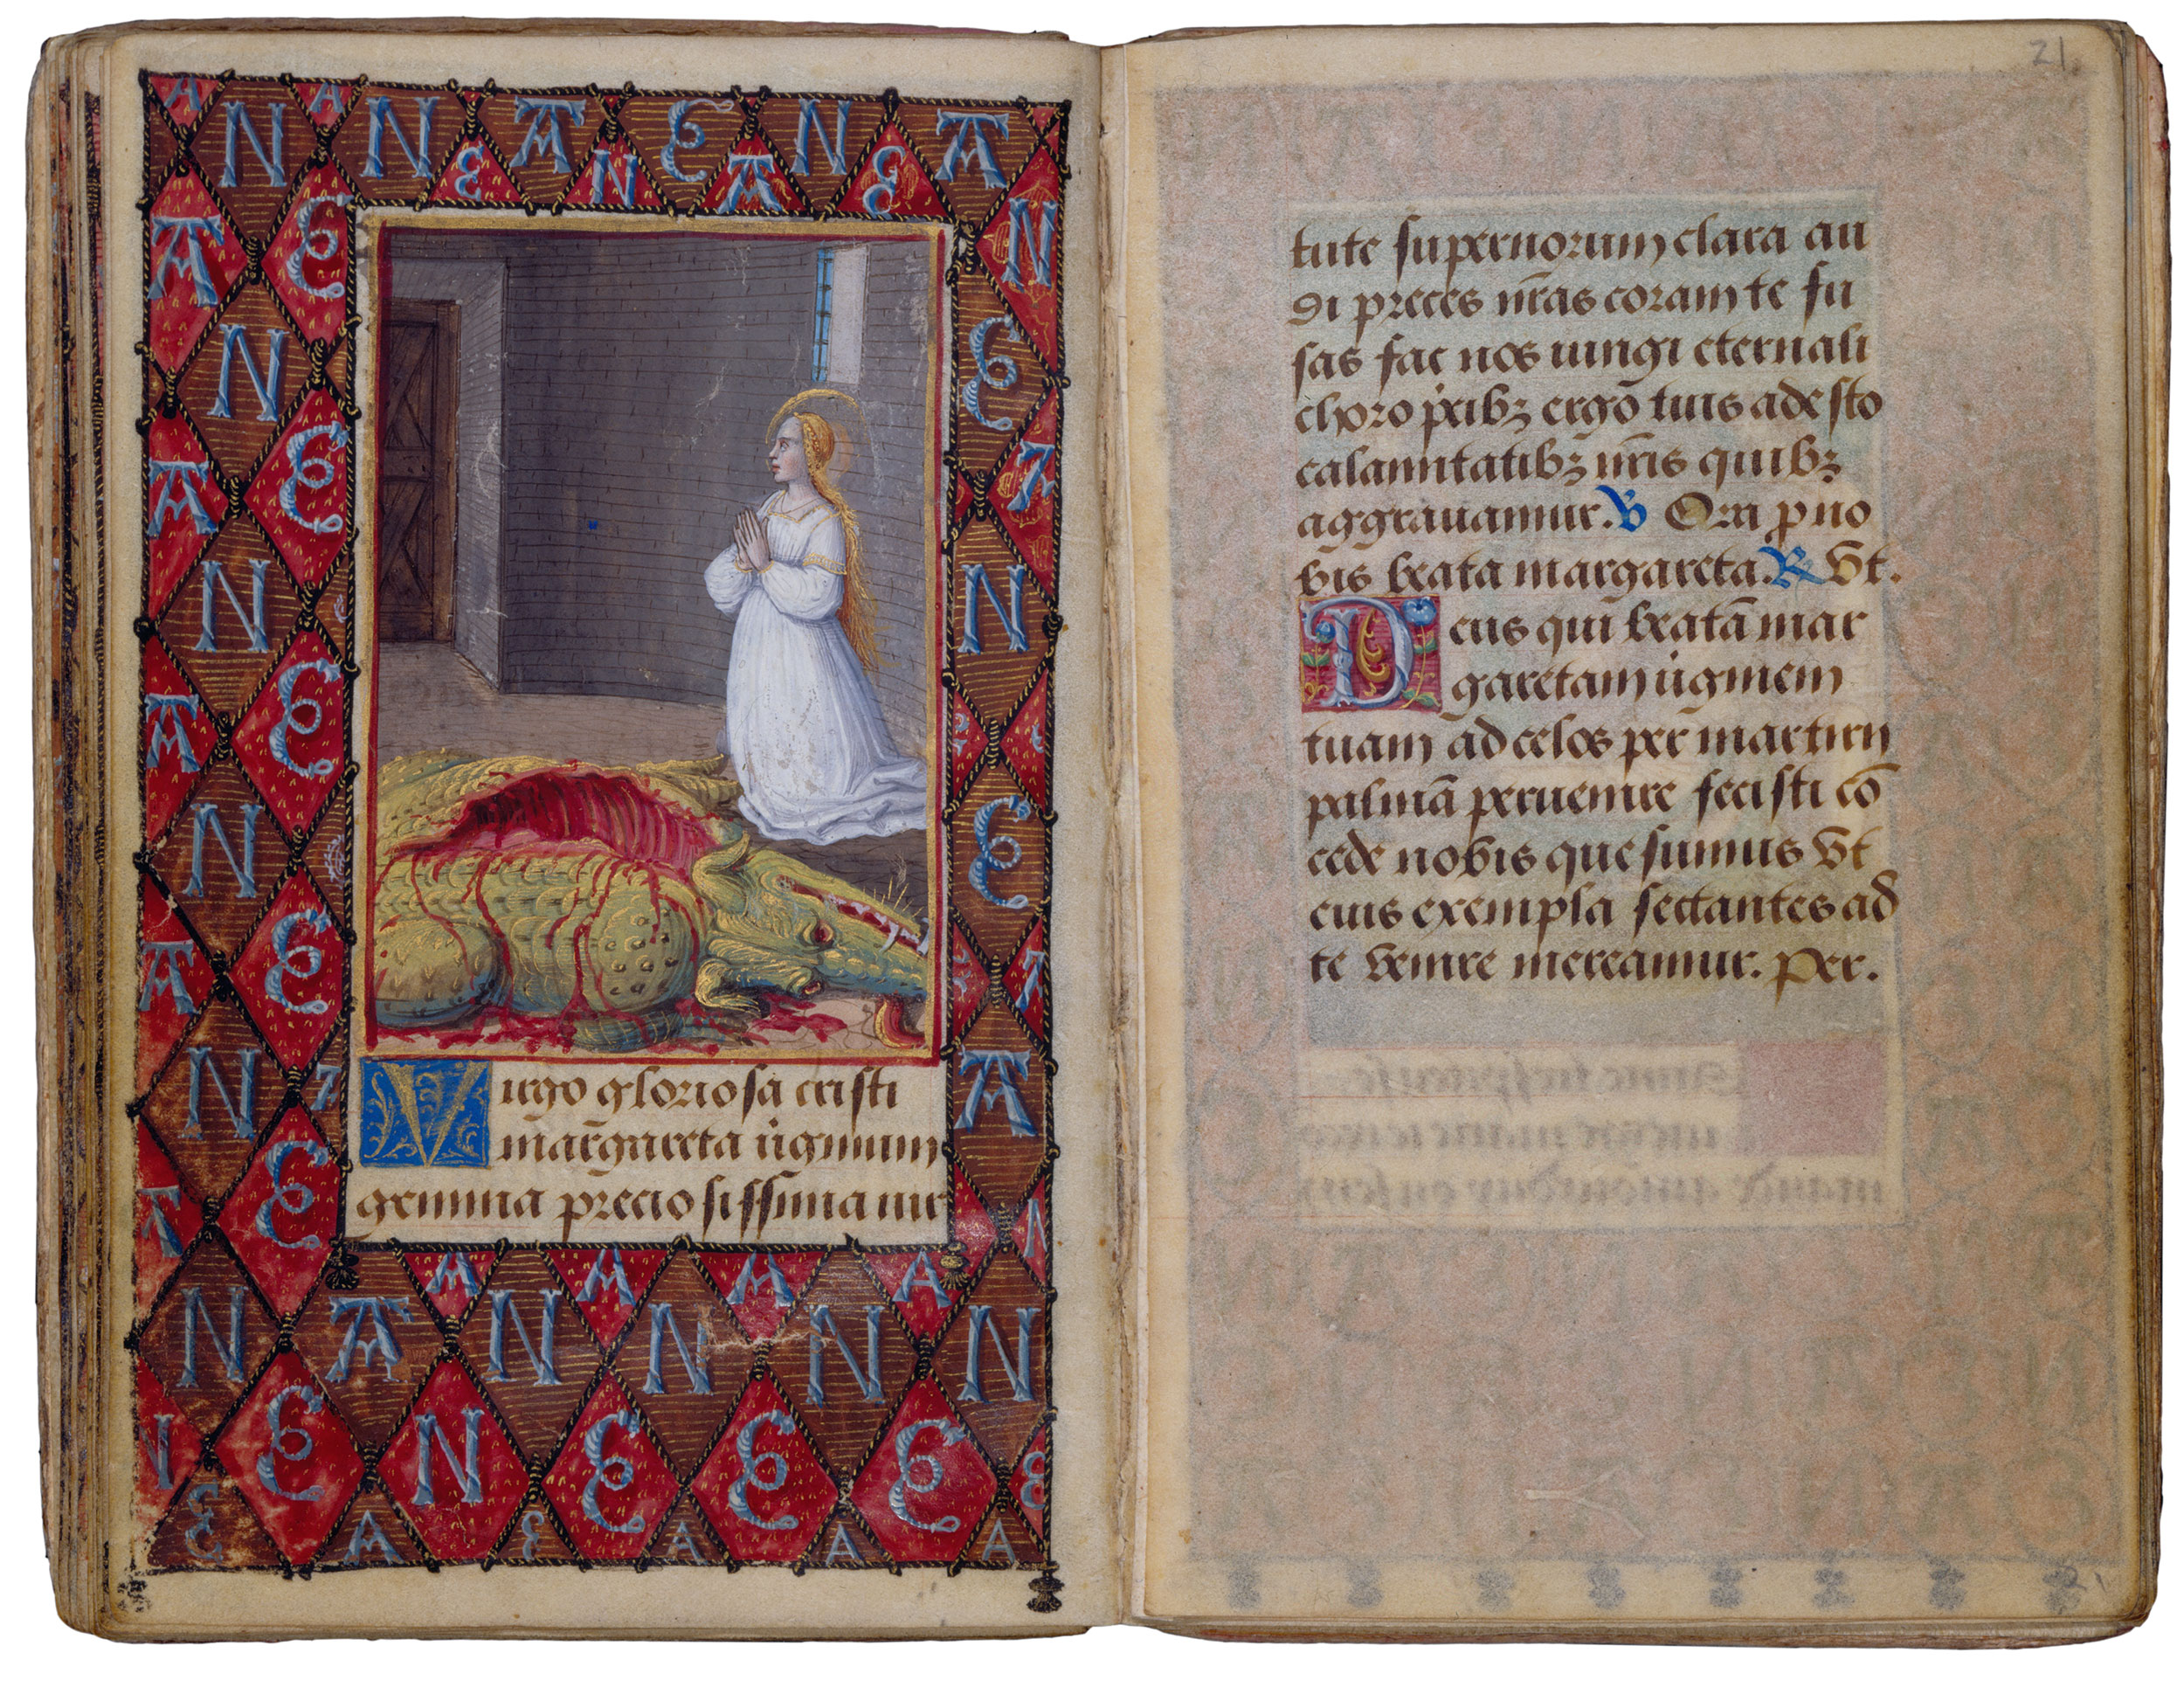 Virgo gloriosa cristi
margareta v̇ginum
gemma preciosissima vir
21
tute supernorum clara au
di preces nr̄as coram te fu
sas fac nos iungi eternali
choro ṗcibꝫ ergo tuis adesto
calamitatibꝫ nr̄is quibꝫ
aggrauamur. V Ora p no
bis beata margareta. R Vt.
Deus qui beatā mar
garetam v̇ginem
tuam ad celos per martirii
palmā peruenire fecisti cō
cede nobis que sumus vt
eius exempla sectantes ad
te venire mereamur. Per.